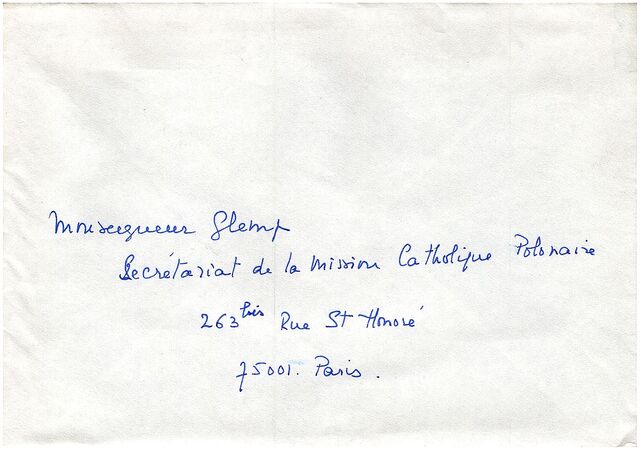 Monseigneur Glemp
Secrétariat de la Mission Catholique Polonaise
263 bis Rue St Honoré
75001. Paris.